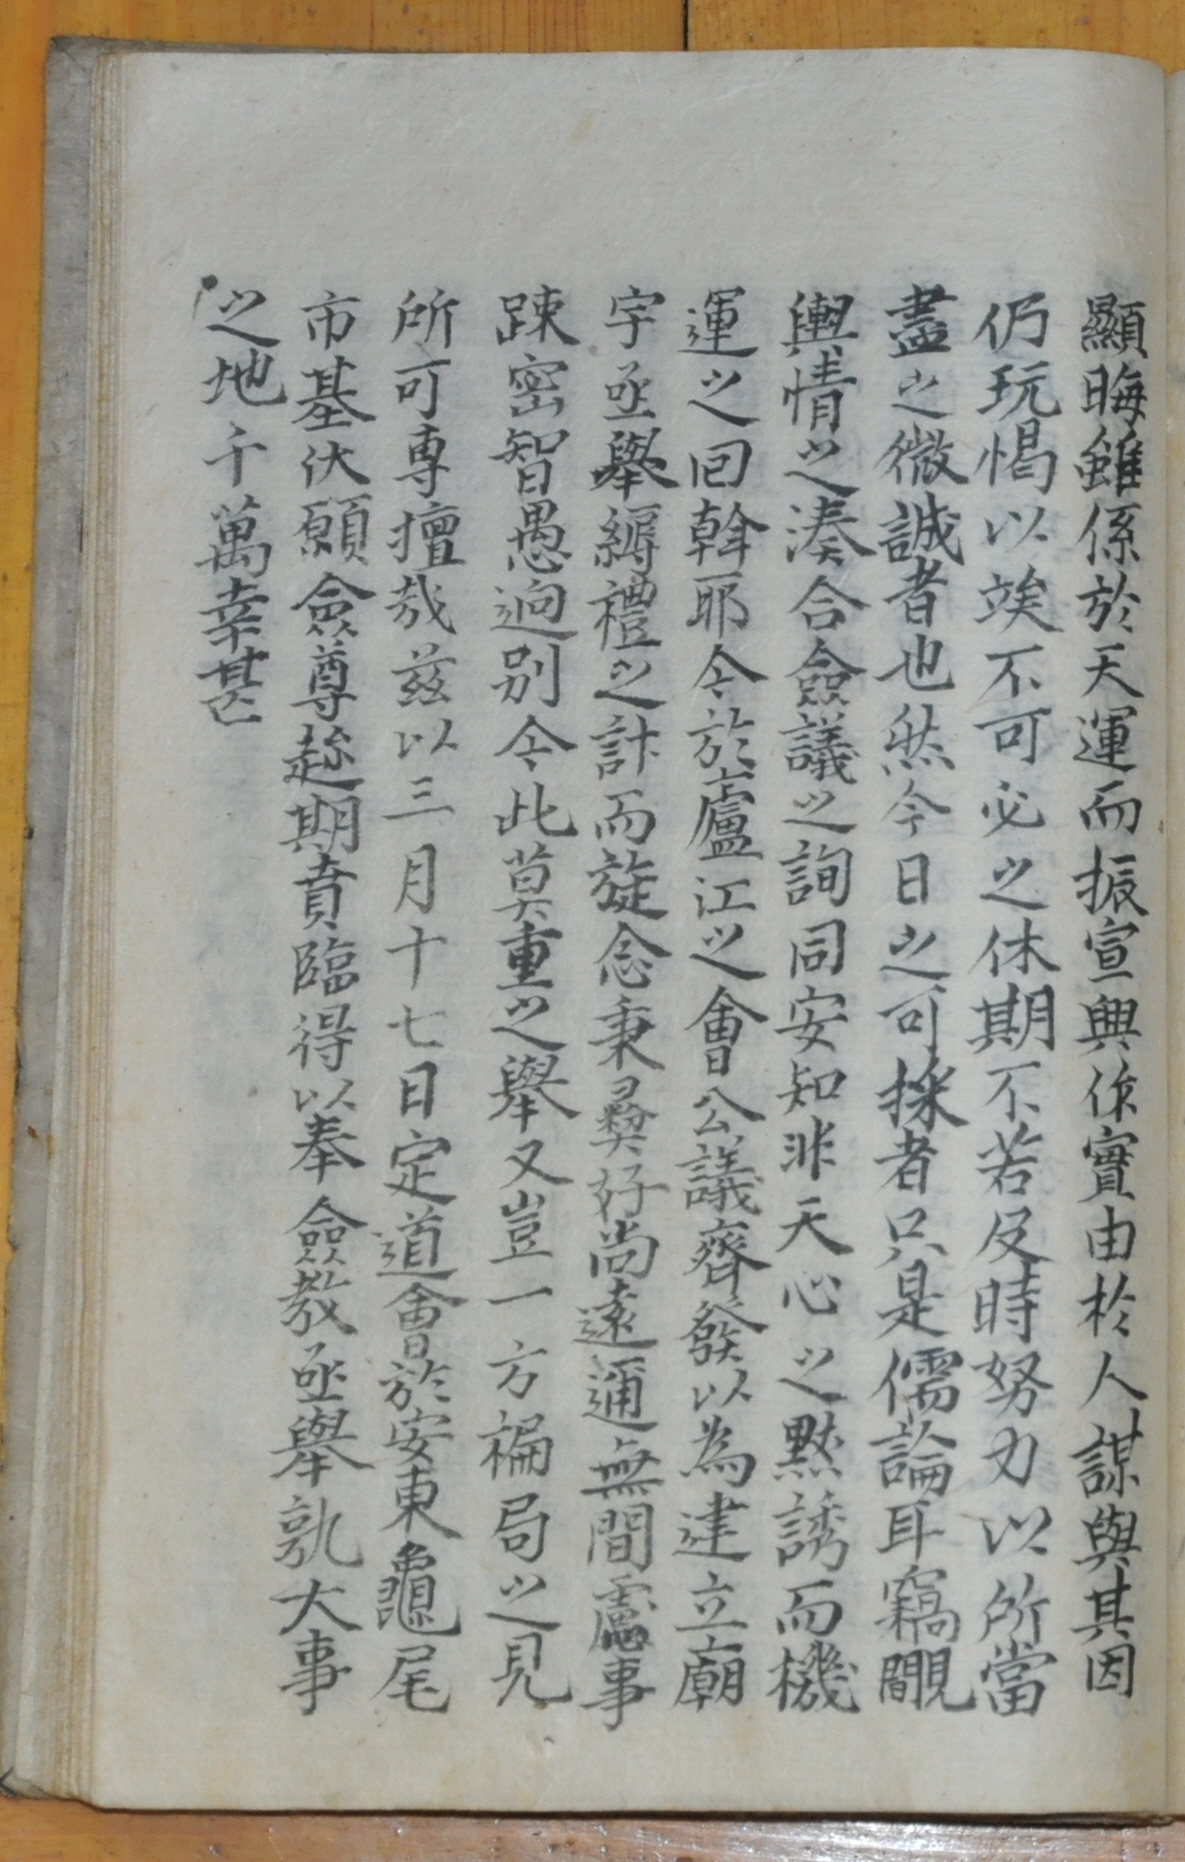 顯晦雖係於天運而振宣興作實由於人謀與其因
仍玩愒以竢不可必之休期不若及時努力以所當
盡之微誠者也然今日之可採者只是儒論耳竊覸
輿情之湊合僉議之詢同安知非天心之默誘而機
運之回斡耶今於廬江之會公議齊發以為建立廟
宇亟舉縟禮之計而旋念秉彛好尚遠邇無間慮事
踈密智愚逈別今此莫重之舉又豈一方褊局之見
所可專擅哉玆以三月十七日定道會於安東龜尾
市基伏願僉尊趁期賁臨得以奉僉教亟舉孰大事
之地千萬幸甚